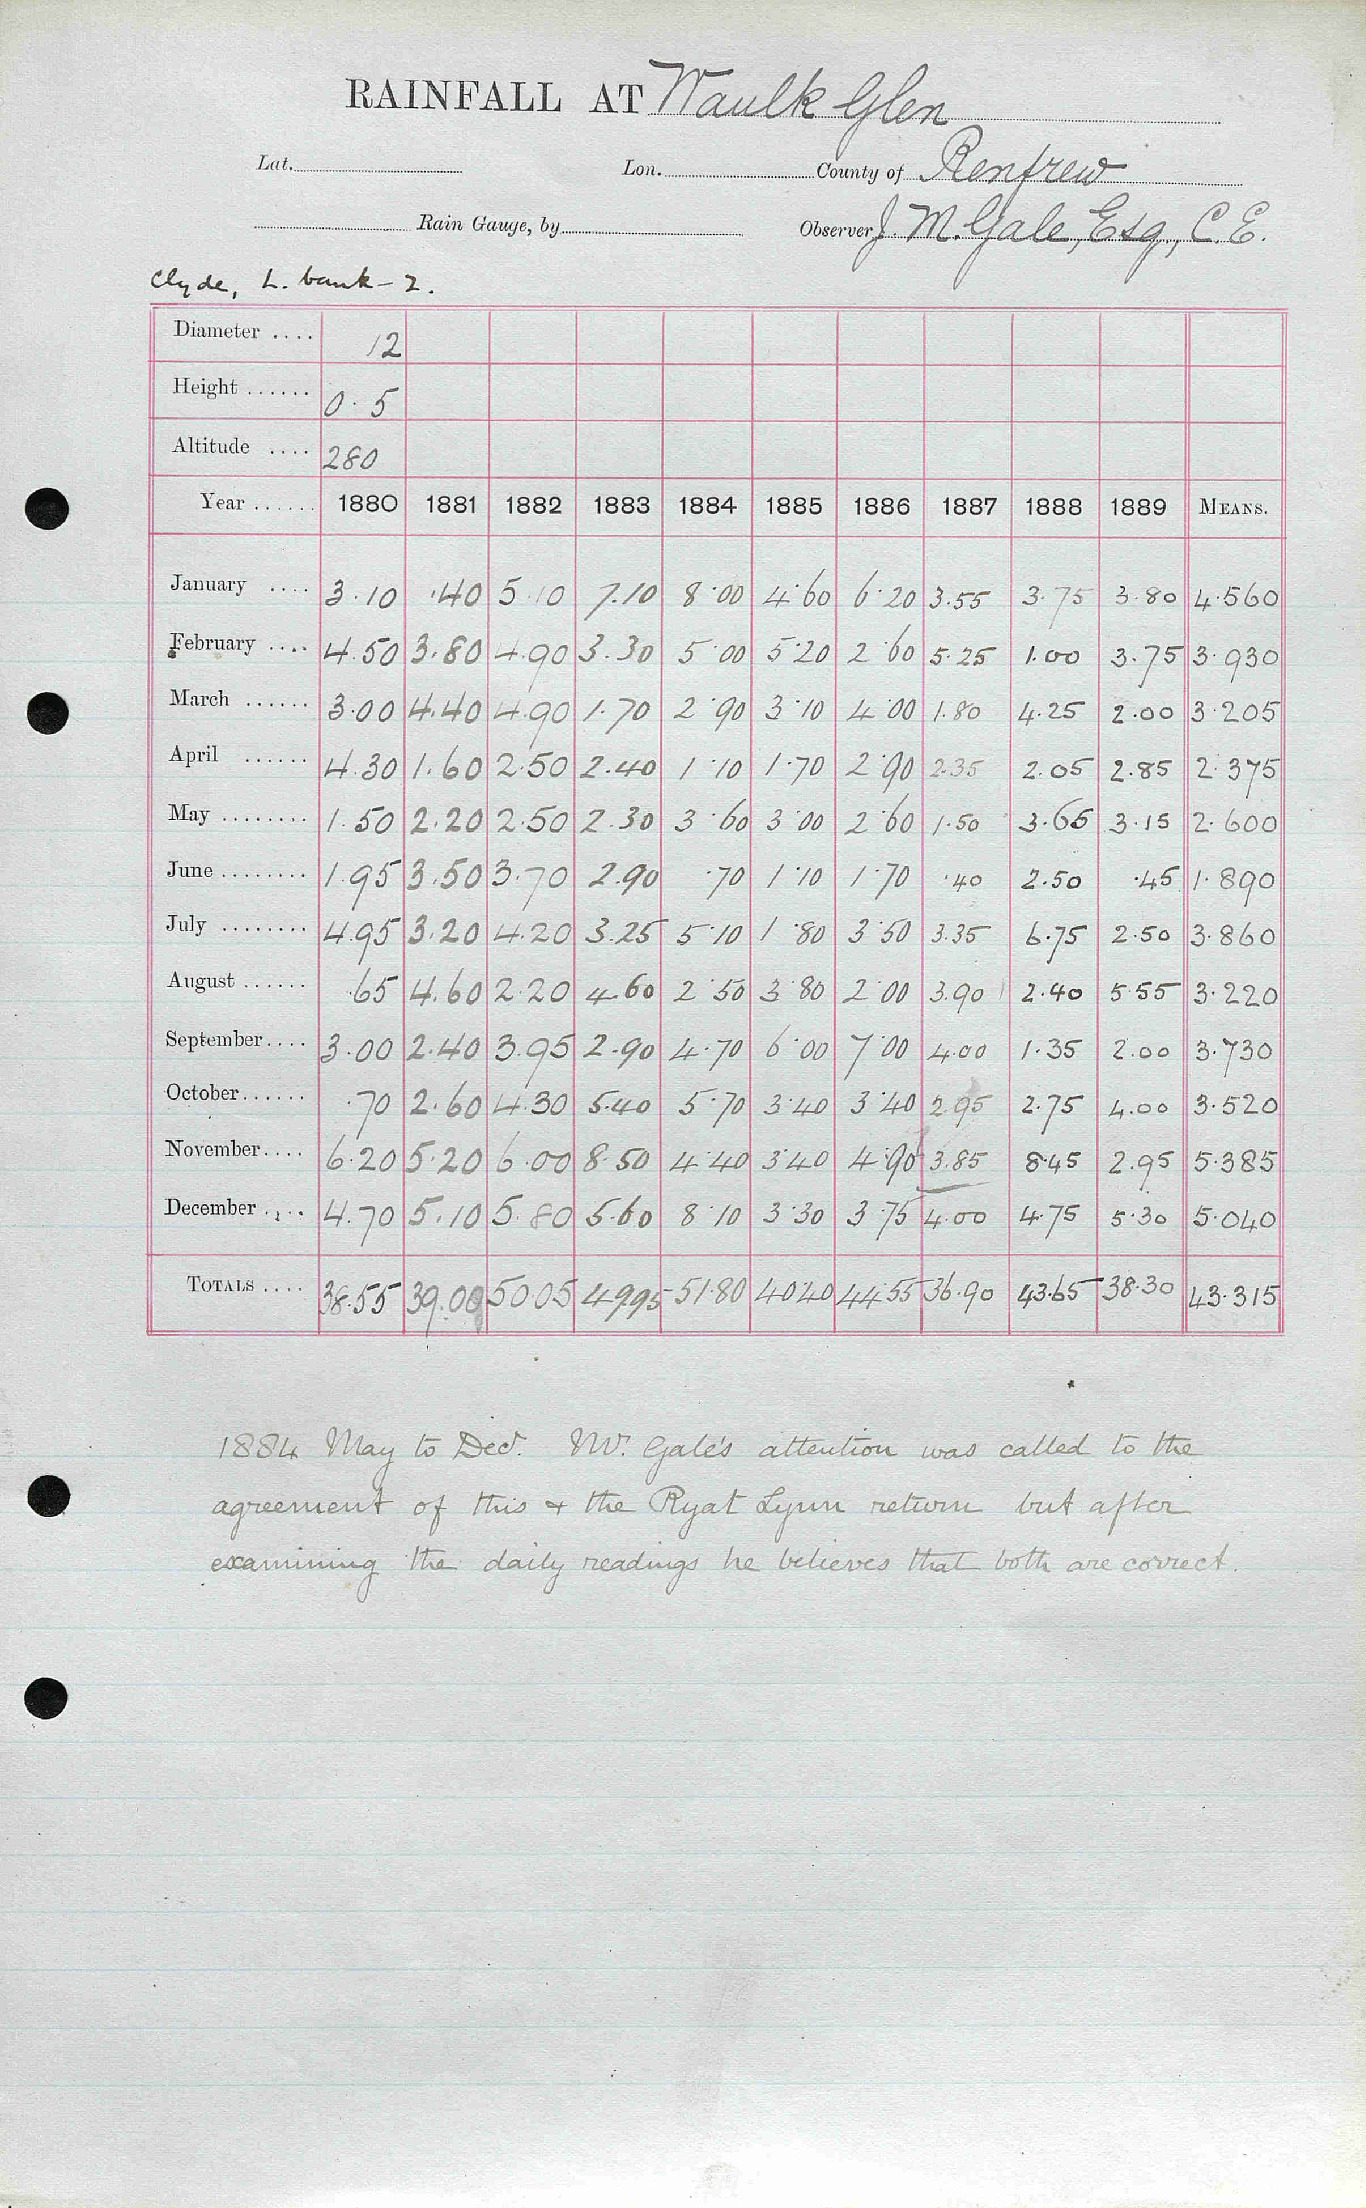 RAINFALL AT Waulk Glen
Lat. Lon. County of Renfrew
Rain Gauge, by Observer J. M. Gale, Esq., C.E.
Clyde, L. bank - 2.
Diameter .... 12
Height ...... 0.5
Altitude .... 280
Year ...... 1880 1881 1882 1883 1884 1885 1886 1887 1888 1889 MEANS.
January .... 3.10 .40 5.10 7.10 8.00 4.60 6.20 3.55 3.75 3.80 4.560
February .... 4.50 3.80 4.90 3.30 5.00 5.20 2.60 5.25 1.00 3.75 3.930
March ...... 3.00 4.40 4.90 1.70 2.90 3.10 4.00 1.80 4.25 2.00 3.205
April ...... 4.30 1.60 2.50 2.40 1.10 1.70 2.90 2.35 2.05 2.85 2.375
May ........ 1.50 2.20 2.50 2.30 3.60 3.00 2.60 1.50 3.65 3.15 2.600
June ........ 1.95 3.50 3.70 2.90 .70 1.10 1.70 .40 2.50 .45 1.890
July ........ 4.95 3.20 4.20 3.25 5.10 1.80 3.50 3.35 6.75 2.50 3.860
August ...... .65 4.60 2.20 4.60 2.50 3.80 2.00 3.90 2.40 5.55 3.220
September.... 3.00 2.40 3.95 2.90 4.70 6.00 7.00 4.00 1.35 2.00 3.730
October...... .70 2.60 4.30 5.40 5.70 3.40 3.40 2.95 2.75 4.00 3.520
November.... 6.20 5.20 6.00 8.50 4.40 3.40 4.90 3.85 8.45 2.95 5.385
December .... 4.70 5.10 5.80 5.60 8.10 3.30 3.75 4.00 4.75 5.30 5.040
TOTALS .... 38.55 39.00 50.05 49.95 51.80 40.40 44.55 36.90 43.65 38.30 43.315
1884 May to Decr. Mr. Gale's attention was called to the
agreement of this & the Ryat Lynn return but after
examining the daily readings he believes that both are correct.